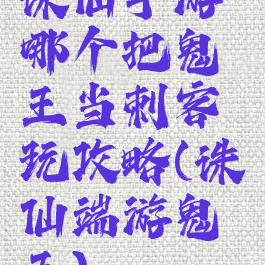 诛仙手游
哪个把鬼
王当刺客
玩攻略(诛
仙端游鬼
王)